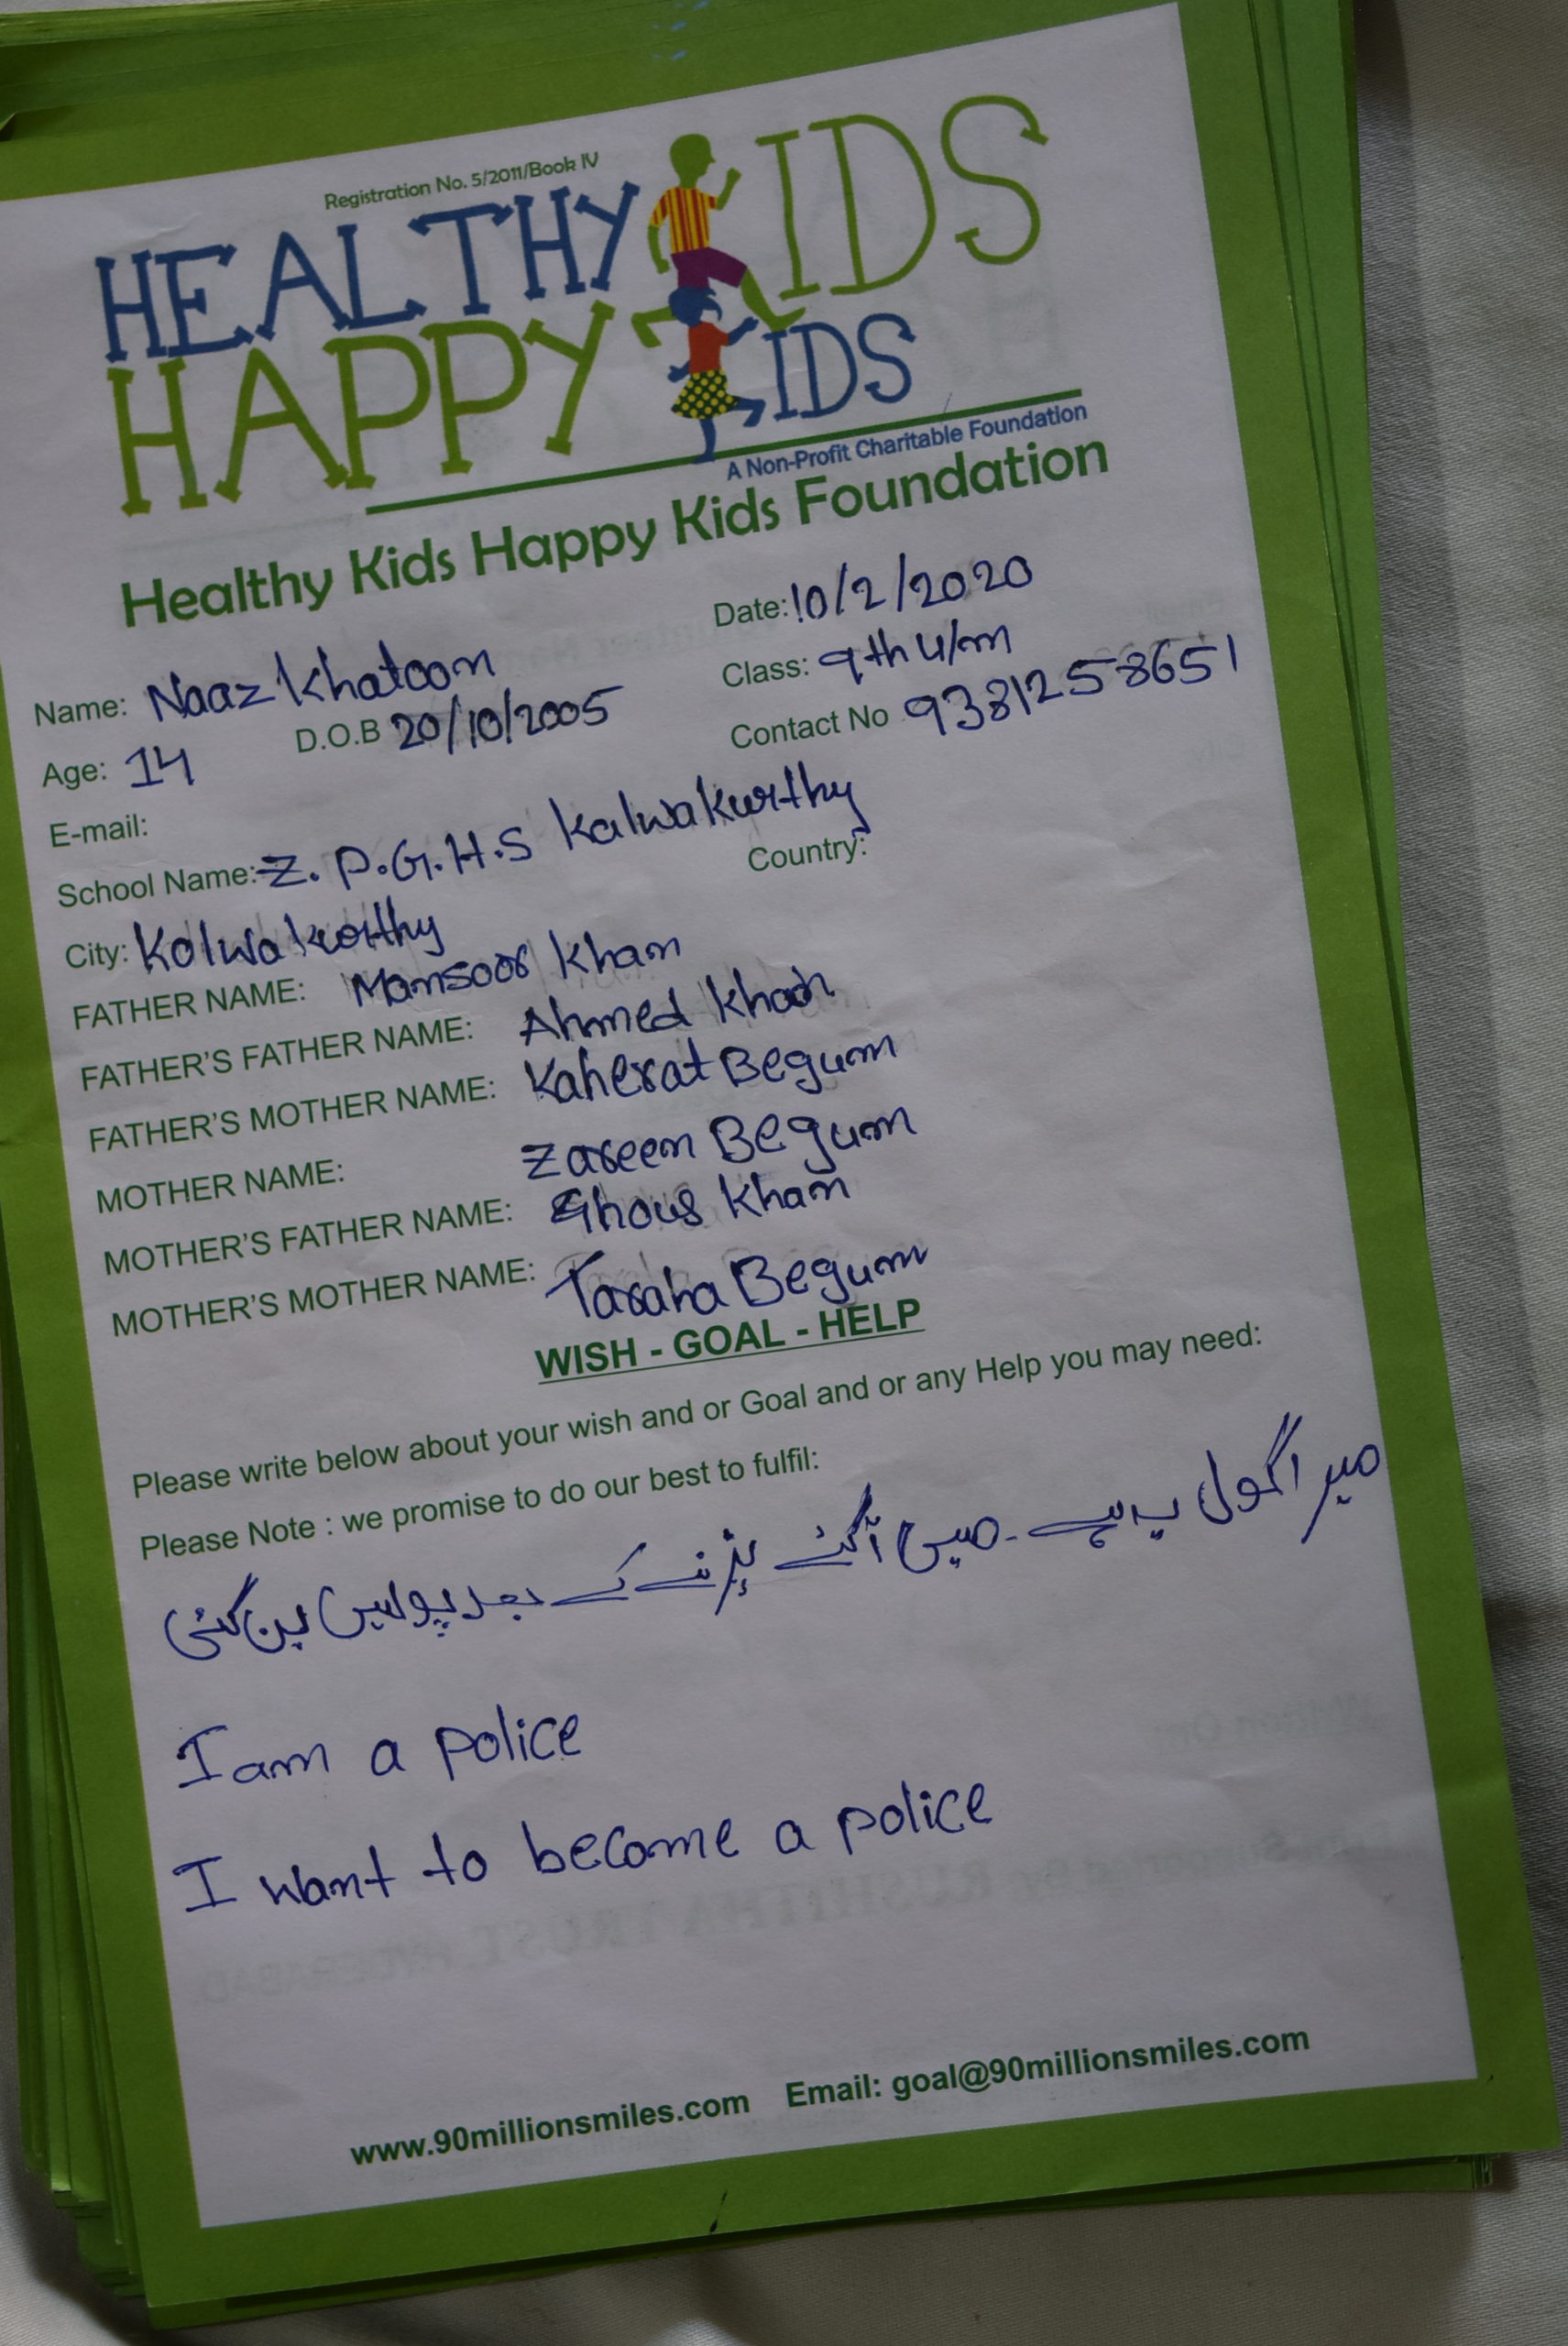 Registration No. 5/2011/Book IV
HEALTHY KIDS
HAPPY KIDS
A Non-Profit Charitable Foundation
Healthy Kids Happy Kids Foundation
Date: 10/2/2020
Name: Naaz Khatoon
Class: 9th u/m
Age: 14 D.O.B 20/10/2005
Contact No 9381258651
E-mail:
School Name: Z.P.G.H.S Kalwakurthy
City: Kalwakurthy Country:
FATHER NAME: Mansoor Khan
FATHER'S FATHER NAME: Ahmed Khan
FATHER'S MOTHER NAME: Kaherat Begum
MOTHER NAME: Zareen Begum
MOTHER'S FATHER NAME: Ghous Khan
MOTHER'S MOTHER NAME: Taraha Begum
WISH - GOAL - HELP
Please write below about your wish and or Goal and or any Help you may need:
Please Note : we promise to do our best to fulfil:
میرا گول یہ ہے۔ میں آگئے پڑنے کے بعد پولیس بن گئی
I am a police
I want to become a police
www.90millionsmiles.com Email: goal@90millionsmiles.com